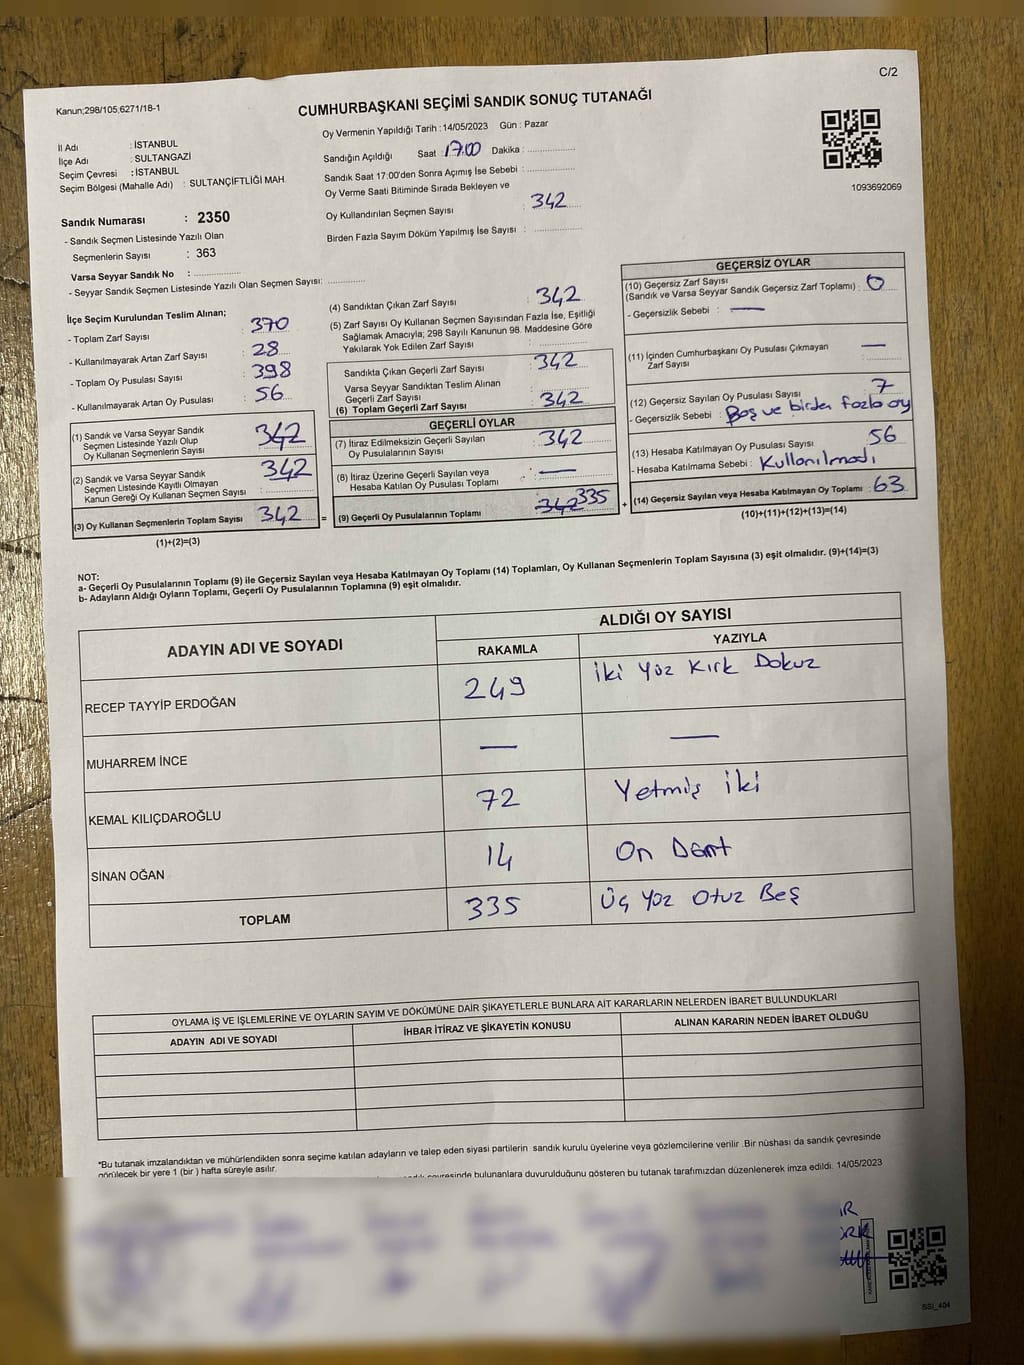 C/2
Kanun;298/105,6271/18-1
CUMHURBAŞKANI SEÇİMİ SANDIK SONUÇ TUTANAĞI
İl Adı : İSTANBUL
İlçe Adı : SULTANGAZİ
Seçim Çevresi : İSTANBUL
Seçim Bölgesi (Mahalle Adı) : SULTANÇİFTLİĞİ MAH.
Sandık Numarası : 2350
- Sandık Seçmen Listesinde Yazılı Olan
Seçmenlerin Sayısı : 363
Varsa Seyyar Sandık No : ................
- Seyyar Sandık Seçmen Listesinde Yazılı Olan Seçmen Sayısı: ................
Oy Vermenin Yapıldığı Tarih : 14/05/2023 Gün : Pazar
Sandığın Açıldığı Saat 17.00 Dakika : ................
Sandık Saat 17:00'den Sonra Açımış İse Sebebi : ................
Oy Verme Saati Bitiminde Sırada Bekleyen ve
Oy Kullandırılan Seçmen Sayısı : 342
Birden Fazla Sayım Döküm Yapılmış İse Sayısı : ................
1093692069
İlçe Seçim Kurulundan Teslim Alınan;
- Toplam Zarf Sayısı : 370
- Kullanılmayarak Artan Zarf Sayısı : 28
- Toplam Oy Pusulası Sayısı : 398
- Kullanılmayarak Artan Oy Pusulası : 56
(1) Sandık ve Varsa Seyyar Sandık
Seçmen Listesinde Yazılı Olup
Oy Kullanan Seçmenlerin Sayısı : 342
(2) Sandık ve Varsa Seyyar Sandık
Seçmen Listesinde Kayıtlı Olmayan
Kanun Gereği Oy Kullanan Seçmen Sayısı : 342
(3) Oy Kullanan Seçmenlerin Toplam Sayısı 342 =
(1)+(2)=(3)
(4) Sandıktan Çıkan Zarf Sayısı : 342
(5) Zarf Sayısı Oy Kullanan Seçmen Sayısından Fazla İse, Eşitliği
Sağlamak Amacıyla; 298 Sayılı Kanunun 98. Maddesine Göre
Yakılarak Yok Edilen Zarf Sayısı : ................
Sandıkta Çıkan Geçerli Zarf Sayısı : 342
Varsa Seyyar Sandıktan Teslim Alınan
Geçerli Zarf Sayısı : ................
(6) Toplam Geçerli Zarf Sayısı : 342
GEÇERLİ OYLAR
(7) İtiraz Edilmeksizin Geçerli Sayılan
Oy Pusulalarının Sayısı : 342
(8) İtiraz Üzerine Geçerli Sayılan veya
Hesaba Katılan Oy Pusulası Toplamı : —
(9) Geçerli Oy Pusulalarının Toplamı : 342 335 +
GEÇERSİZ OYLAR
(10) Geçersiz Zarf Sayısı
(Sandık ve Varsa Seyyar Sandık Geçersiz Zarf Toplamı) : 0
- Geçersizlik Sebebi : —
(11) İçinden Cumhurbaşkanı Oy Pusulası Çıkmayan
Zarf Sayısı : —
(12) Geçersiz Sayılan Oy Pusulası Sayısı : 7
- Geçersizlik Sebebi : Boş ve birden fazla oy
(13) Hesaba Katılmayan Oy Pusulası Sayısı 56
- Hesaba Katılmama Sebebi : Kullanılmadı
(14) Geçersiz Sayılan veya Hesaba Katılmayan Oy Toplamı : 63
(10)+(11)+(12)+(13)=(14)
NOT:
a- Geçerli Oy Pusulalarının Toplamı (9) ile Geçersiz Sayılan veya Hesaba Katılmayan Oy Toplamı (14) Toplamları, Oy Kullanan Seçmenlerin Toplam Sayısına (3) eşit olmalıdır. (9)+(14)=(3)
b- Adayların Aldığı Oyların Toplamı, Geçerli Oy Pusulalarının Toplamına (9) eşit olmalıdır.
ADAYIN ADI VE SOYADI
ALDIĞI OY SAYISI
RAKAMLA YAZIYLA
RECEP TAYYİP ERDOĞAN 249 İki Yüz Kırk Dokuz
MUHARREM İNCE — —
KEMAL KILIÇDAROĞLU 72 Yetmiş İki
SİNAN OĞAN 14 On Dört
TOPLAM 335 Üç Yüz Otuz Beş
OYLAMA İŞ VE İŞLEMLERİNE VE OYLARIN SAYIM VE DÖKÜMÜNE DAİR ŞİKAYETLERLE BUNLARA AİT KARARLARIN NELERDEN İBARET BULUNDUKLARI
ADAYIN ADI VE SOYADI İHBAR İTİRAZ VE ŞİKAYETİN KONUSU ALINAN KARARIN NEDEN İBARET OLDUĞU
*Bu tutanak imzalandıktan ve mühürlendikten sonra seçime katılan adayların ve talep eden siyasi partilerin sandık kurulu üyelerine veya gözlemcilerine verilir .Bir nüshası da sandık çevresinde
görülecek bir yere 1 (bir ) hafta süreyle asılır.
bulunanlara duyurulduğunu gösteren bu tutanak tarafımızdan düzenlenerek imza edildi. 14/05/2023
SSI_404